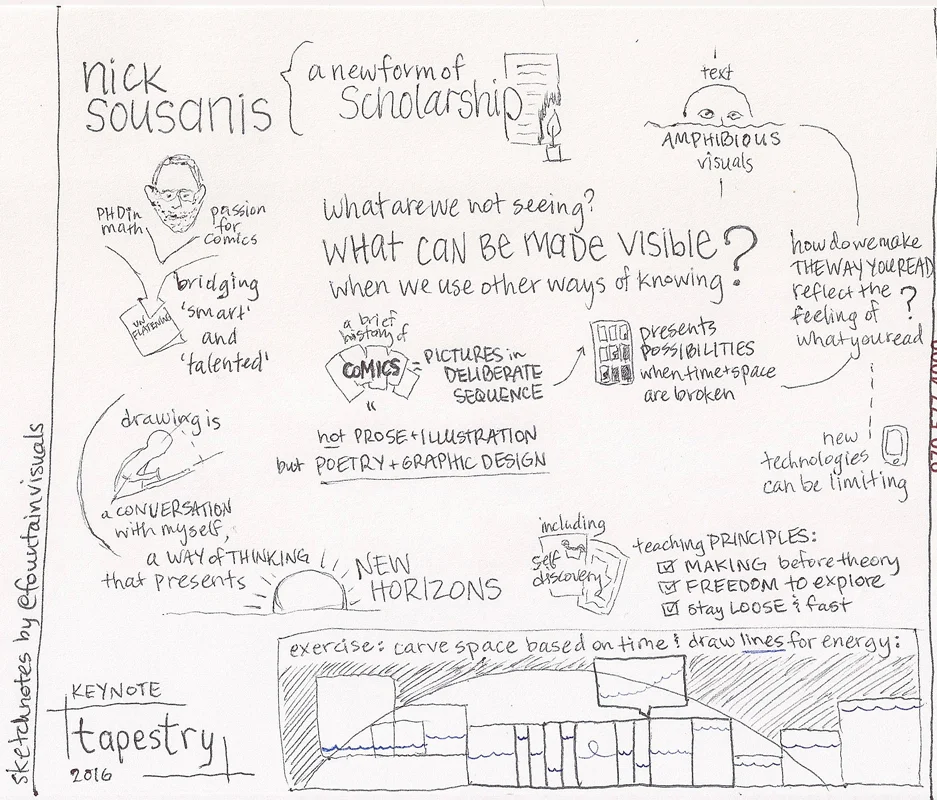 nick
sousanis
a new form of
Scholarship
text
AMPHIBIOUS
visuals
PHD in
math
passion
for
comics
bridging
'smart'
and
'talented'
UN
FLATTENING
what are we not seeing?
WHAT CAN BE MADE VISIBLE?
when we use other ways of knowing
how do we make
THE WAY YOU READ
reflect the
feeling of
what you read
?
a brief
history of
COMICS
= PICTURES in
DELIBERATE
SEQUENCE
presents
POSSIBILITIES
when time + space
are broken
not PROSE + ILLUSTRATION
but POETRY + GRAPHIC DESIGN
new
technologies
can be limiting
drawing is
a CONVERSATION
with myself,
a WAY of THINKING
that presents
NEW
HORIZONS
including
self
discovery
teaching PRINCIPLES:
MAKING before theory
FREEDOM to explore
stay LOOSE & fast
exercise: carve space based on time & draw lines for energy:
KEYNOTE
tapestry
2016
sketchnotes by @fountainvisuals